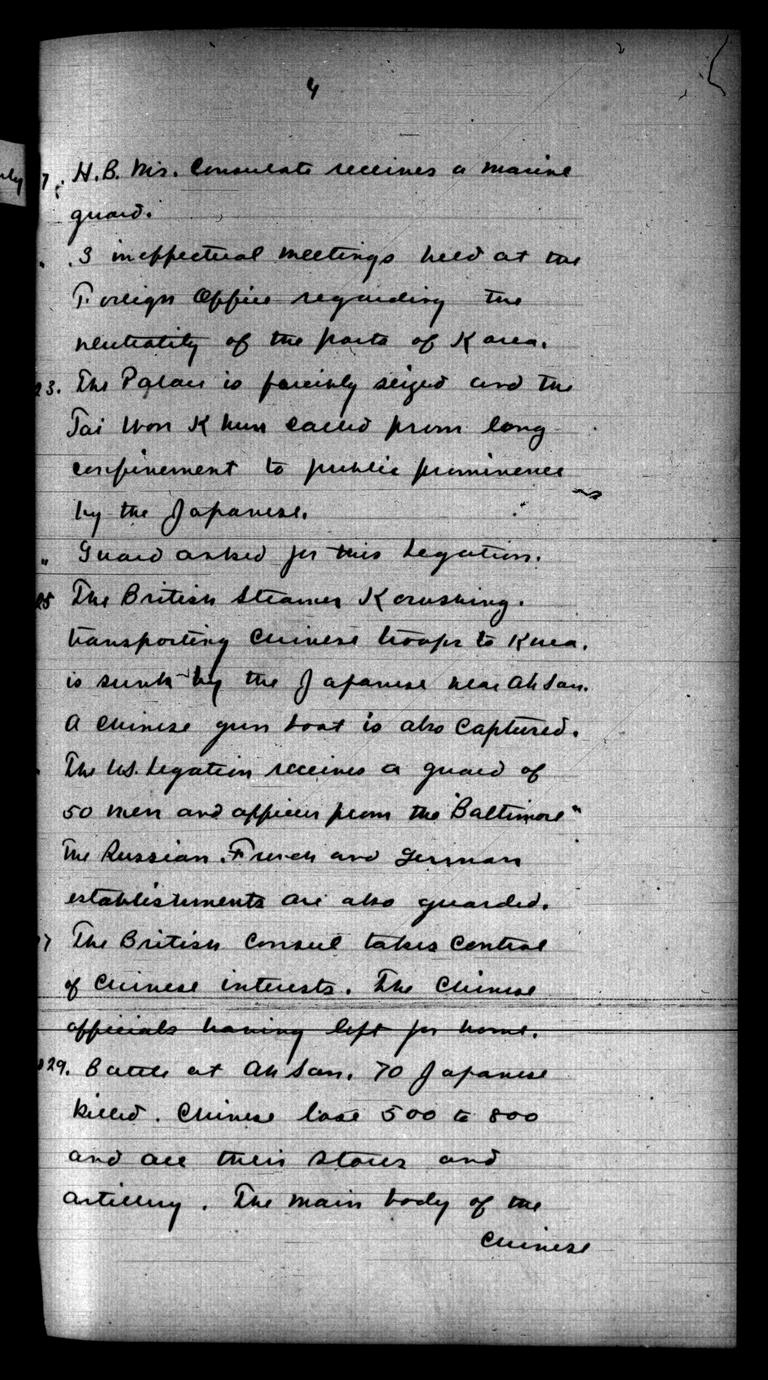 4
uly 7. H.B. Ms. Consulate receives a marine
guard.
" . 3 ineffectual meetings held at the
Foreign Office regarding the
neutrality of the ports of Korea.
23. The Palace is forcibly seized and the
Tai Won Khun called from long
confinement to public prominence
by the Japanese.
" Guard asked for this Legation.
25 The British Steamer Kowshing.
transporting Chinese troops to Korea.
is sunk by the Japanese near Ah San.
A Chinese gun boat is also captured.
" The U.S. Legation receives a guard of
50 men and officers from the "Baltimore"
The Russian, French and German
establishments are also guarded.
7 The British Consul takes control
of Chinese interests. The Chinese
officials having left for home.
29. Battle at Ah San. 70 Japanese
killed. Chinese lose 500 to 800
and all their stores and
artillery. The main body of the
Chinese